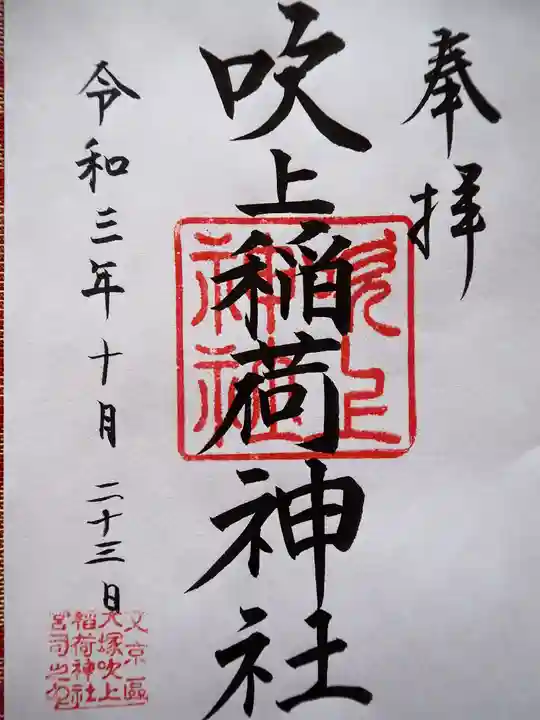 奉拝
吹上稲荷神社
令和三年十月二十三日
吹上
稲荷
神社
文京區
大塚吹上
稲荷神社
宮司之印